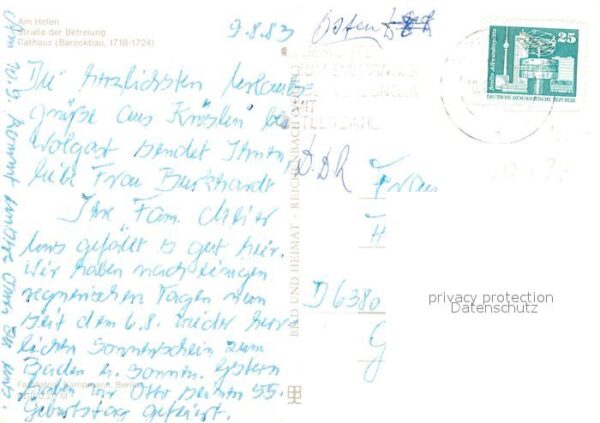 Am Hafen
Straße der Befreiung
Rathaus (Barockbau, 1718-1724)
9.8.83
Die herzlichsten Urlaubs-
grüße aus Kröslin bei
Wolgast sendet Ihnen
liebe Frau Burkhardt
Ihre Fam. Meier
Uns gefällt es gut hier.
Wir haben nach einigen
regnerischen Tagen nun
seit dem 6.8. wieder herr-
lichen Sonnenschein zum
Baden u. Sonnen. Gestern
haben wir Otto seinen 55.
Geburtstag gefeiert.
Am 10.9. kommt unsere
BILD UND HEIMAT · REICHENBACH
Berlin-Alexanderplatz
25
DEUTSCHE DEMOKRATISCHE REPUBLIK
MIT
DDR
Frau
H
D 6380
G
privacy protection
Datenschutz